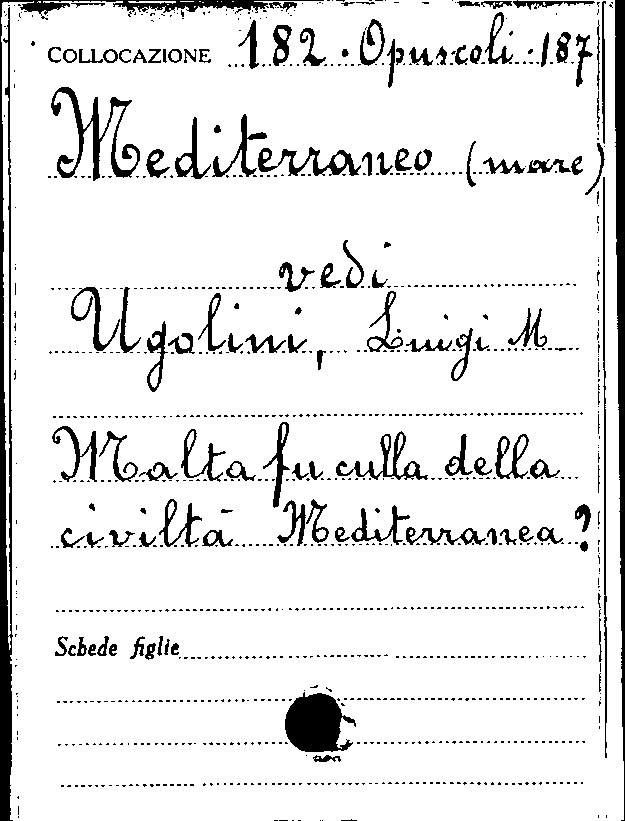 COLLOCAZIONE 182 . Opuscoli . 187
Mediterraneo (mare)
vedi
Ugolini, Luigi M
Malta fu culla della
civiltà Mediterranea?
Schede figlie